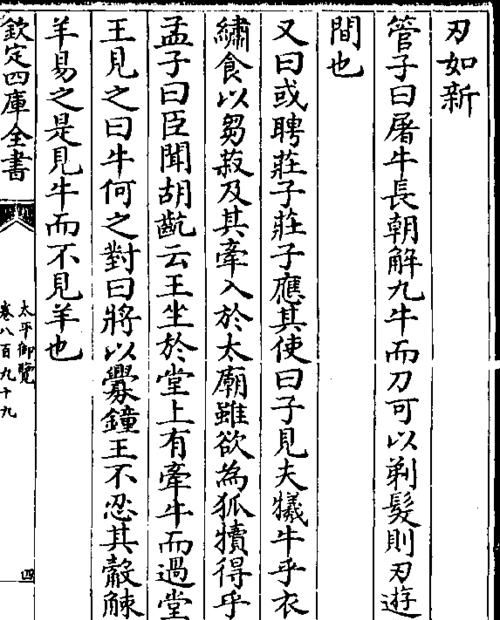 刃如新
管子曰屠牛長朝解九牛而刀可以剃髮則刃遊
間也
又曰或聘莊子莊子應其使曰子見夫犧牛乎衣
繡食以芻菽及其牽入於太廟雖欲為狐犢得乎
孟子曰臣聞胡齕云王坐於堂上有牽牛而過堂
王見之曰牛何之對曰將以釁鐘王不忍其觳觫
羊易之是見牛而不見羊也
欽定四庫全書
太平御覽
卷八百九十九
四